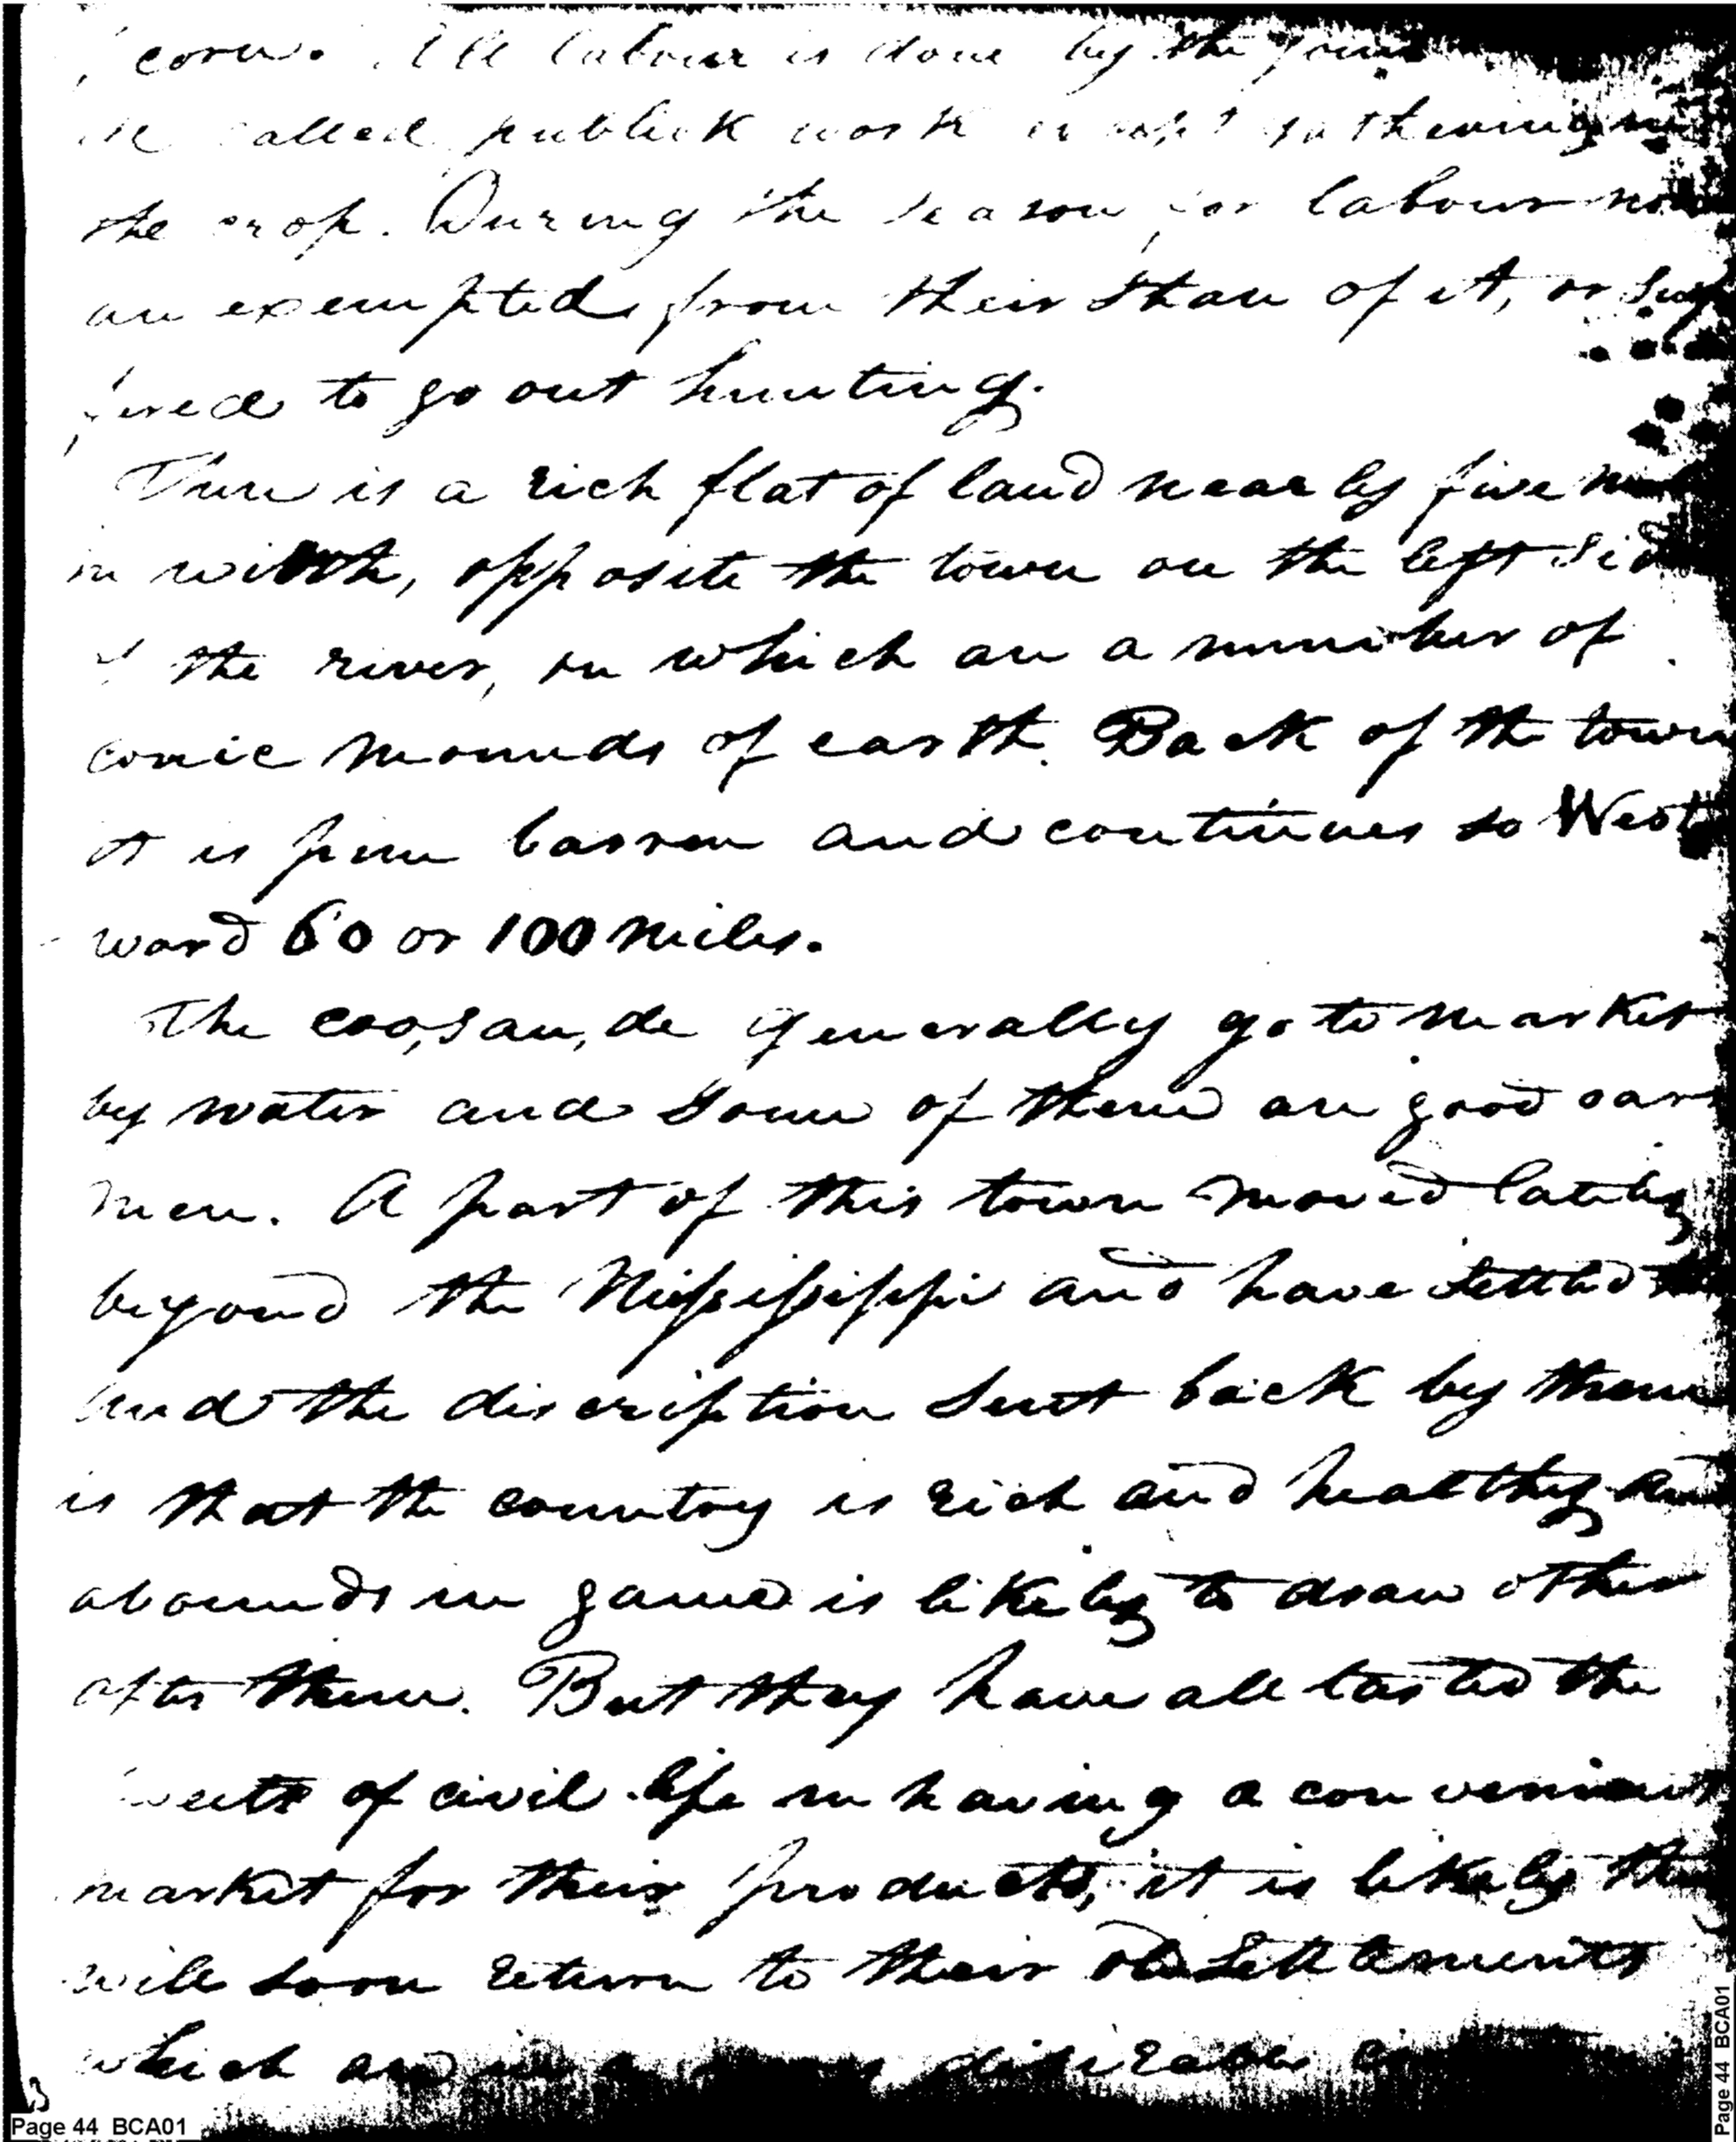 corn. All labour is done by the
called publick work gathering
the crop. During the season for labour
are exempted from their share of it, or suf
fered to go out hunting.
There is a rich flat of land nearly five
in width, opposite the town on the left side
of the river, on which are a number of
conic mounds of earth. Back of the town
it is pine barren and continues so West
ward 60 or 100 miles.
The coo,sau,de generally go to market
by water and some of them are good oars
men. A part of this town moved lately
beyond the Mississippi and have settled
and the discription sent back by them
is that the country is rich and healthy and
abounds in game is likely to draw other
after them. But they have all tasted the
sweets of civil life in having a convenient
market for their products, it is likely they
will soon return to their old settlements
which are in a desireable
Page 44 BCA01
Page 44 BCA01